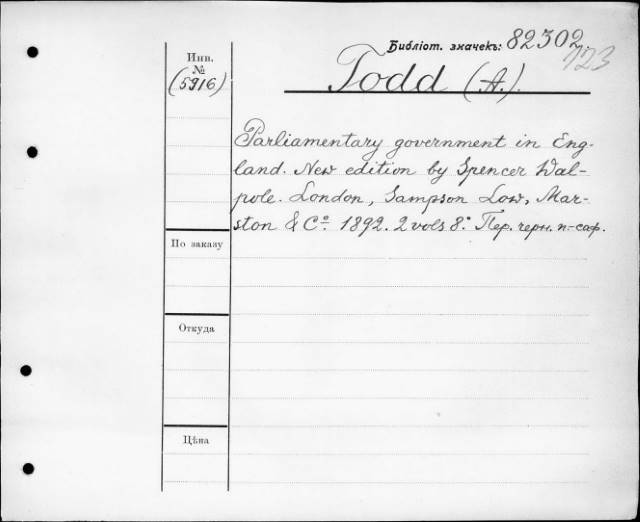 Библіот. значекъ: 82302
123
Инв.
№
(5916)
Todd (A.).
Parliamentary government in Eng-
land. New edition by Spencer Wal-
pole. London, Sampson Low, Mar-
ston & Cº. 1892. 2 vols 8º. Пер. черн. п.-саф.
По заказу
Откуда
Цѣна